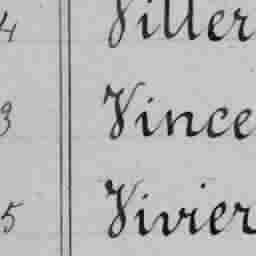 4 Viller
3 Vince
5 Vivier